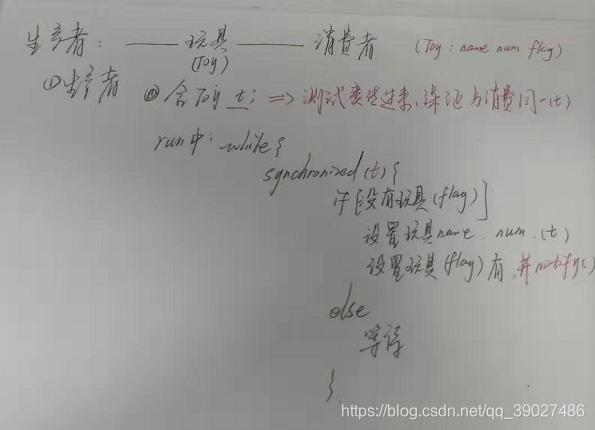 生产者： —— 玩具 —— 消费者 (Toy : name num flag)
(Toy)
①生产者 ② 含Toy t; => 测试类传过来,保证与消费同一(t)
run中: while {
synchronized(t){
if [没有玩具(flag)]
设置玩具name. num. (t)
设置玩具(flag)有,并notify()
else
等待
}
https://blog.csdn.net/qq_39027486